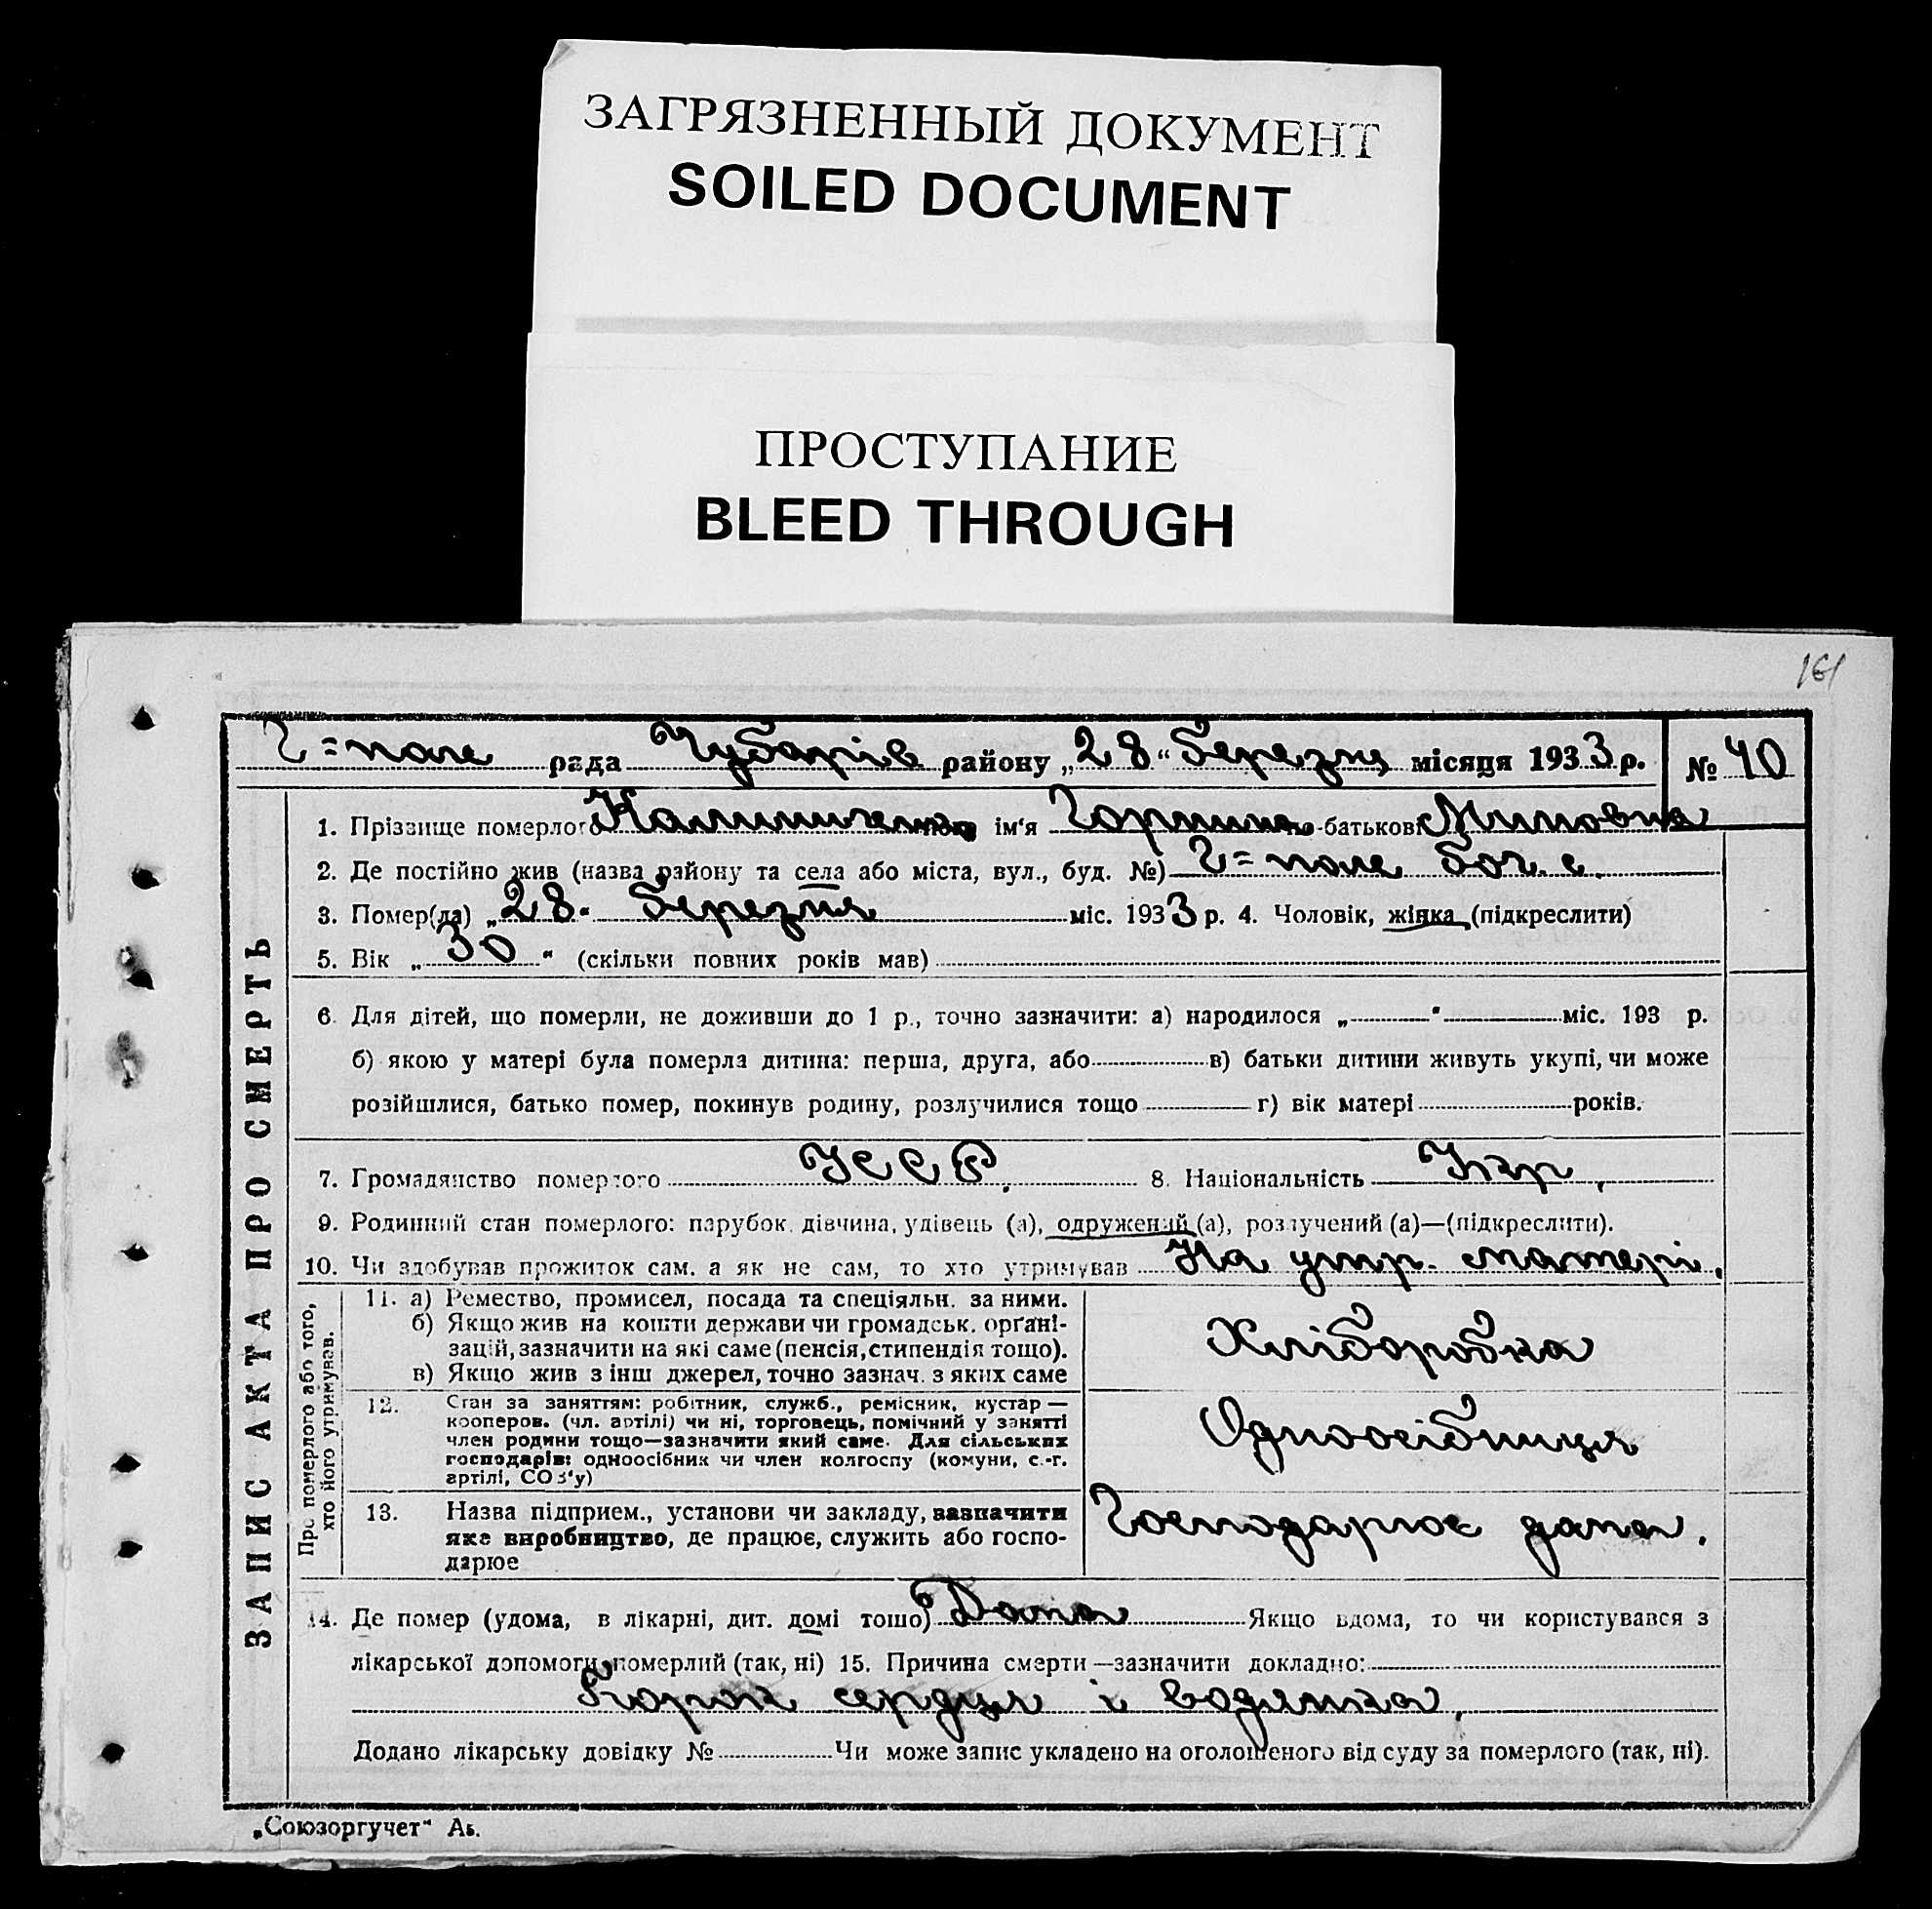 ЗАГРЯЗНЕННЫЙ ДОКУМЕНТ
SOILED DOCUMENT
ПРОСТУПАНИЕ
BLEED THROUGH
161
Г=поле рада Чубарів району „28“ березня місяця 1933 р. № 40
ЗАПИС АКТА ПРО СМЕРТЬ
1. Прізвище померлого ім'я Горпина по-батькові
2. Де постійно жив (назва району та села або міста, вул., буд. №) Г=поле
3. Помер(ла) „28“ березня міс. 1933 р. 4. Чоловік, жінка (підкреслити)
5. Вік „30“ (скільки повних років мав)
6. Для дітей, що померли, не доживши до 1 р., точно зазначити: а) народилося „ “ міс. 193 р.
б) якою у матері була померла дитина: перша, друга, або в) батьки дитини живуть укупі, чи може
розійшлися, батько помер, покинув родину, розлучилися тощо г) вік матері років.
7. Громадянство померлого УССР. 8. Національність Укр.
9. Родинний стан померлого: парубок, дівчина, удівець (а), одружений (а), розлучений (а)—(підкреслити).
10. Чи здобував прожиток сам, а як не сам, то хто утримував На утр. матері.
Про померлого або того,
хто його утримував.
11. а) Ремество, промисел, посада та спеціяльн. за ними.
б) Якщо жив на кошти держави чи громадськ. орґані-
зацій, зазначити на які саме (пенсія, стипендія тощо).
в) Якщо жив з інш джерел, точно зазнач. з яких саме
Хліборобка
12. Стан за заняттям: робітник, служб., ремісник, кустар —
кооперов. (чл. артілі) чи ні, торговець, помічний у занятті
член родини тощо—зазначити який саме. Для сільських
господарів: одноосібник чи член колгоспу (комуни, с.-г.
артілі, СОЗ'у)
Одноосібниця
13. Назва підприєм., установи чи закладу, зазначити
яке виробництво, де працює, служить або госпо-
дарює
Господарює дома.
14. Де помер (удома, в лікарні, дит. домі тощо) Дома Якщо вдома, то чи користувався з
лікарської допомоги померлий (так, ні) 15. Причина смерти—зазначити докладно:
Порок сердця і водянка.
Додано лікарську довідку № Чи може запис укладено на оголошеного від суду за померлого (так, ні).
„Союзоргучет“ Аь.